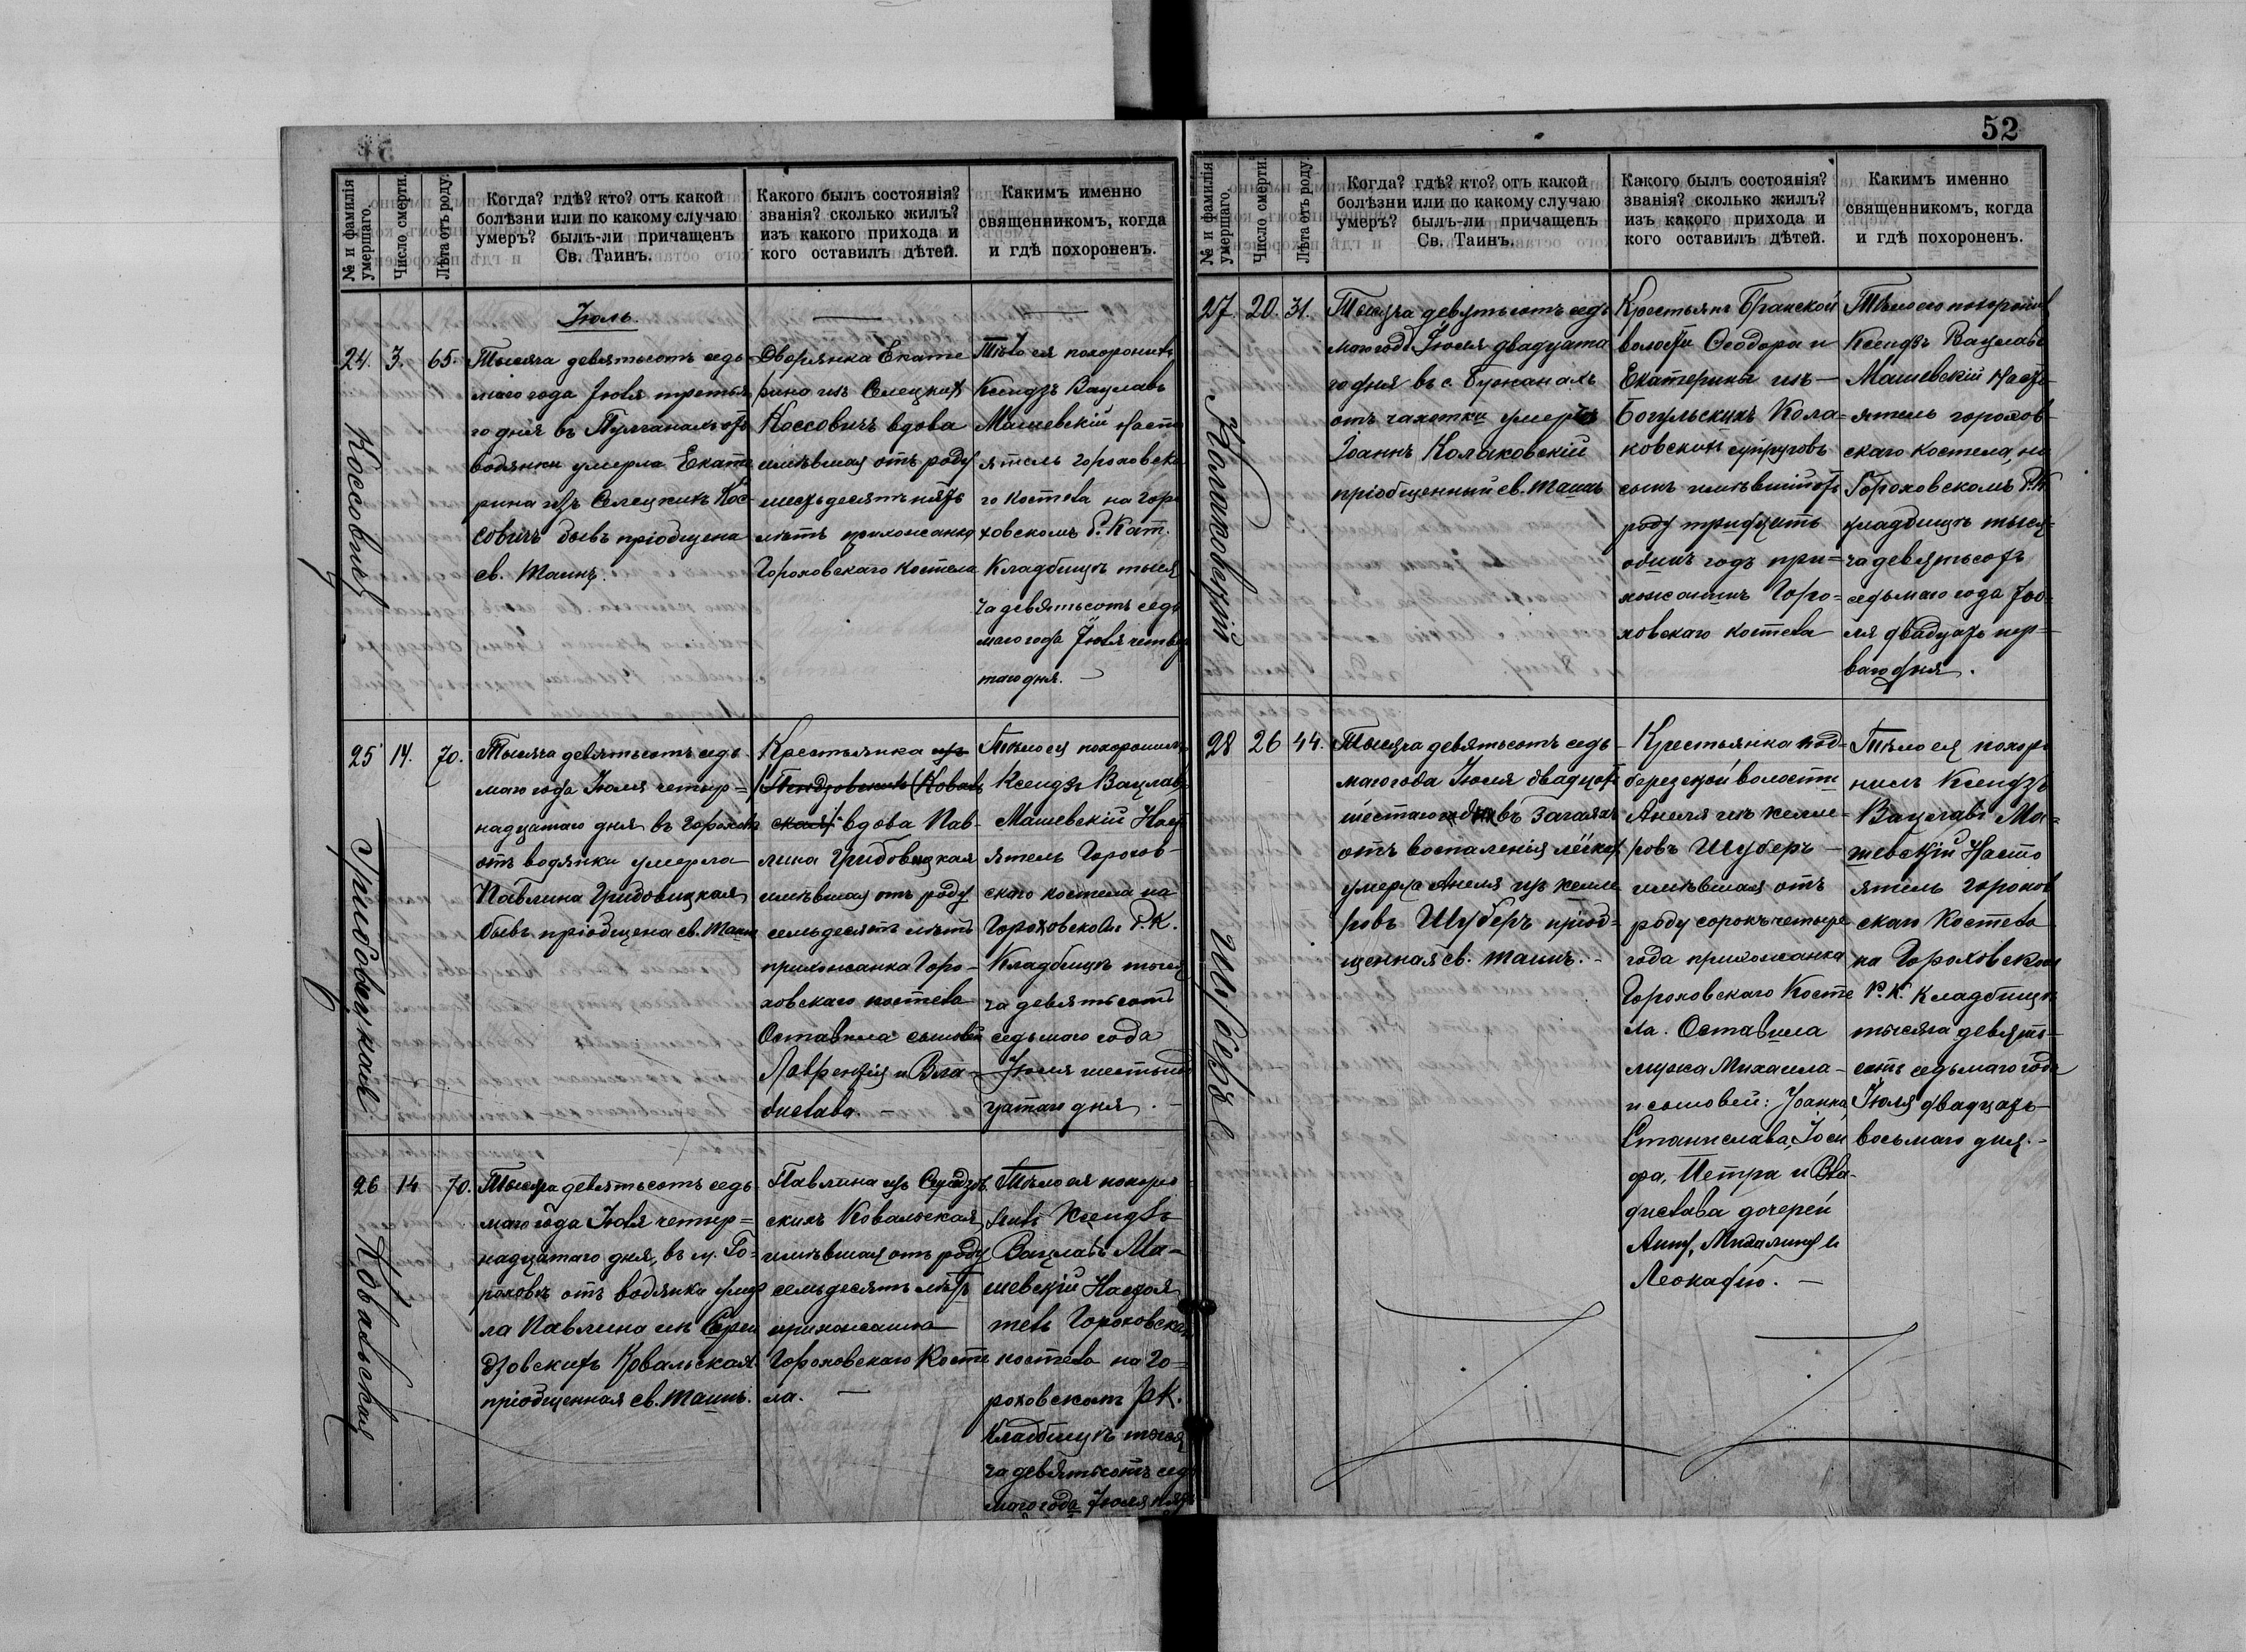 № и фамилія
умершаго.
Число смерти.
Лѣта отъ роду.
Когда? гдѣ? кто? отъ какой
болѣзни или по какому случаю
умеръ? былъ-ли причащенъ
Св. Таинъ.
Какого былъ состоянія?
званія? сколько жилъ?
изъ какого прихода и
кого оставилъ дѣтей.
Какимъ именно
священникомъ, когда
и гдѣ похороненъ.
Іюль.
24.
Коссовичъ
3.
65.
Тысяча девятьсотъ седь
маго года Іюля третья
го дня въ
водянки умерла Екате
рина изъ Селецкихъ Кос
совичъ бывъ пріобщена
св. Таинъ.
Дворянка Екате
рина изъ Селецкихъ
Коссовичъ вдова
имѣвшая отъ роду
шестьдесятъ пять
лѣтъ прихожанка
Гороховскаго костела
Тѣло ея похоронилъ
Ксендзъ Вацлавъ
Машевскій Насто
ятель Гороховска
го костела на Горо
ховскомъ Р. Кат.
Кладбищѣ тыся
ча девятьсотъ седь
маго года Іюля четвер
таго дня.
25
Грибовицкая
14.
70.
Тысяча девятьсотъ седь
маго года Іюля четыр=
надцатаго дня въ Гороховѣ
отъ водянки умерла
Павлина Грибовицкая
бывъ пріобщена св. Таинъ
Крестьянка изъ
(Коваль
ская) вдова Пав-
лина Грибовицкая
имѣвшая отъ роду
семьдесятъ лѣтъ
прихожанка Горо-
ховскаго костела
Оставила сыновей
Лаврентія и Вла-
дислава. -
Тѣло ея похоронилъ
Ксендзъ Вацлавъ
Машевскій Наст
ятель Горохов-
скаго костела на
Гороховскомъ Р. К.
Кладбищѣ тыся
ча девятьсотъ
седьмаго года
Іюля шестьнад
цатаго дня. -
26
Ковальская
14
70.
Тысяча девятьсотъ седь
маго года Іюля четыр=
надцатаго дня, въ м. Го=
роховѣ отъ водянки умер
ла Павлина изъ
дзовскихъ Ковальская
пріобщенная св. Таинъ.
Павлина изъ
скихъ Ковальская
имѣвшая отъ роду
семьдесятъ лѣтъ
прихожанка
Гороховскаго Косте
ла. —
Тѣло ея похоро
нилъ Ксендзъ
Вацлавъ Ма-
шевскій Настоя
тель Гороховскаго
костела на Го=
роховскомъ Р.К.
Кладбищѣ тыся
ча девятьсотъ седь
маго года Іюля пят
52
№ и фамилія
умершаго.
Число смерти.
Лѣта отъ роду.
Когда? гдѣ? кто? отъ какой
болѣзни или по какому случаю
умеръ? былъ-ли причащенъ
Св. Таинъ.
Какого былъ состоянія?
званія? сколько жилъ?
изъ какого прихода и
кого оставилъ дѣтей.
Какимъ именно
священникомъ, когда
и гдѣ похороненъ.
27.
Колаковскій
20.
31.
Тысяча девятьсотъ седь
маго года Іюля двадцата
го дня въ с. Бужанахъ
отъ чахотки умеръ
Іоаннъ Колаковскій
пріобщенный св. Таинъ
Крестьянъ Бранской
волости Ѳеодора и
Екатерины изъ —
Богульскихъ Кола=
ковскихъ супруговъ
сынъ имѣвшій отъ
роду тридцать
одинъ годъ при=
хожанинъ Горо=
ховскаго костела
Тѣло его похоронилъ
Ксендзъ Вацлавъ
Машевскій Насто-
ятель Горохов=
скаго костела, на
Гороховскомъ Р.К.
кладбищѣ тыся=
ча девятьсотъ
седьмаго года Ію=
ля двадцать пер=
ваго дня.
28
Шуберъ
26
44.
Тысяча девятьсотъ седь-
маго года Іюля двадцать
шестаго дня въ Загаяхъ
отъ воспаленія лёгкихъ
умерла Анеля изъ Келле
ровъ Шуберъ пріоб=
щенная св. Таинъ. -
Крестьянка под=
березской волости
Анеля изъ Келле-
ровъ Шуберъ —
имѣвшая отъ
роду сорокъ четыре
года прихожанка
Гороховскаго Косте
ла. Оставила
мужа Михаила -
и сыновей: Іоанна
Станислава, Іоси
фа, Петра и Вла-
дислава дочерей
Анну, Михалину и
Леокадію. —
Тѣло ея похоро
нилъ Ксендзъ
Вацлавъ Ма=
шевскій Насто
ятель Горохов
скаго Костела
на Гороховскомъ
Р.К. Кладбищѣ
тысяча девять-
сотъ седьмаго года
Іюля двадцать
восьмаго дня. -